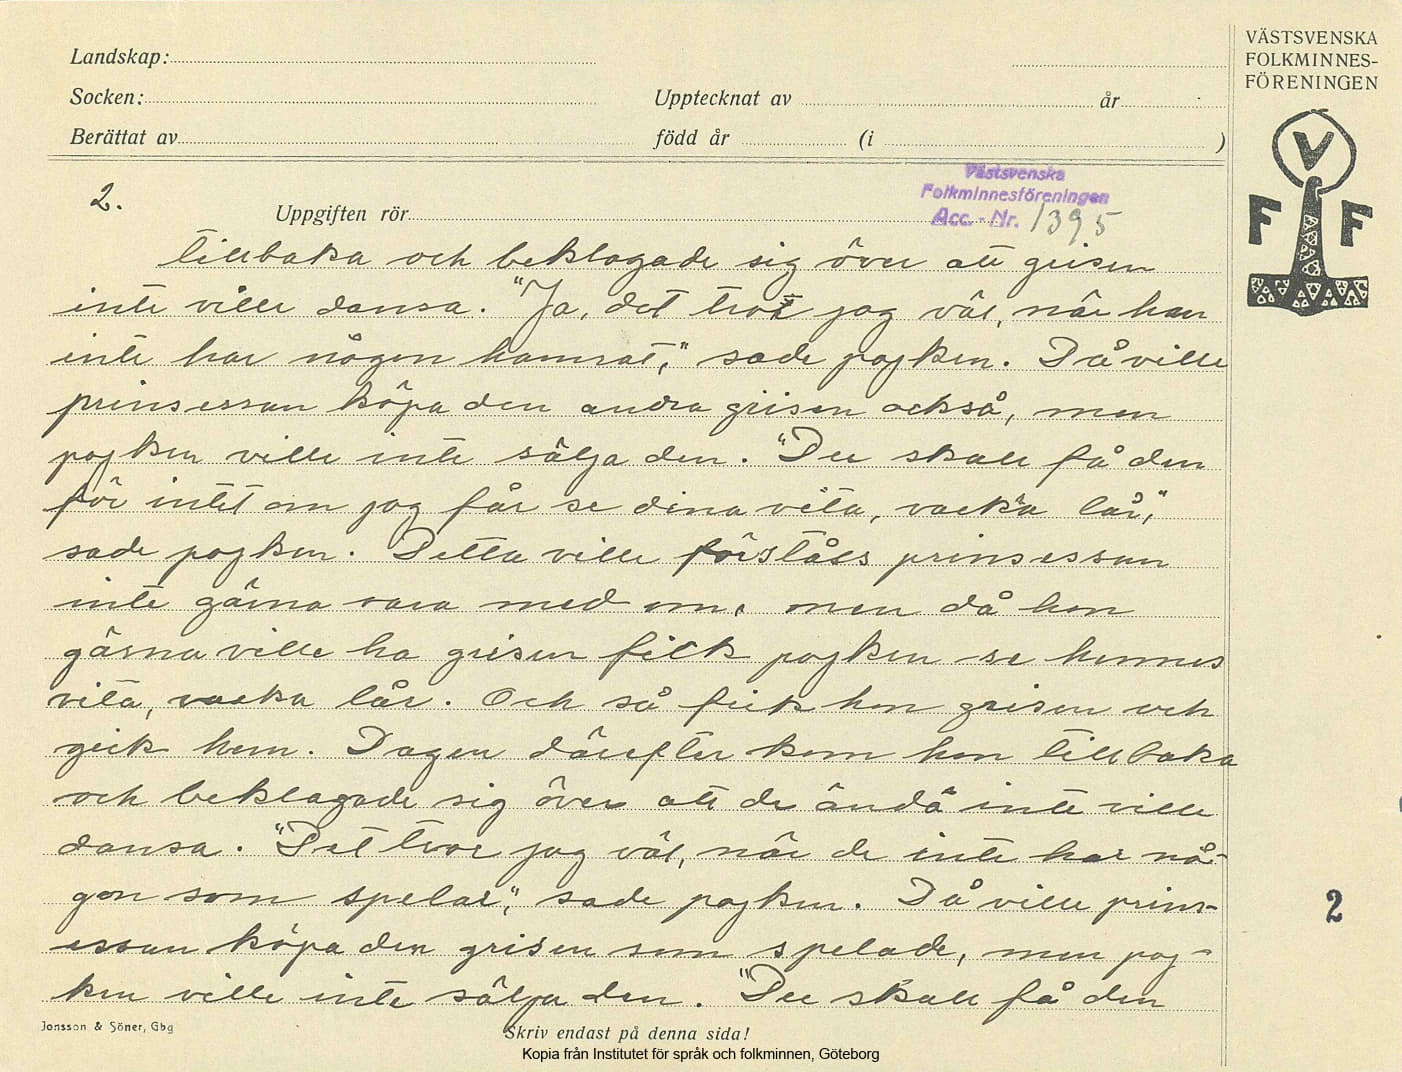 Landskap:
Socken:
Upptecknat av
år
Berättat av
född år
(i
)
VÄSTSVENSKA
FOLKMINNES-
FÖRENINGEN
V
F F
2.
Uppgiften rör
Västsvenska
Folkminnesföreningen
Acc. - Nr. 1395
tillbaka och beklagade sig över att grisen
inte ville dansa. "Ja, det tror jag väl, när han
inte har någon kamrat," sade pojken. Då ville
prinsessan köpa den andra grisen också, men
pojken ville inte sälja den. "Du skall få den
för intet om jag får se dina vita, vackra lår,"
sade pojken. Detta ville förståss prinsessan
inte gärna vara med om, men då hon
gärna ville ha grisen fick pojken se hennes
vita, vacka lår. Och så fick hon grisen och
gick hem. Dagen därefter kom hon tillbaka
och beklagade sig över att de ändå inte ville
dansa. "Det tror jag väl, när de inte har nå-
gon som spelar," sade pojken. Då ville prins-
essan köpa den grisen som spelade, men poj-
ken ville inte sälja den. "Du skall få den
2
Jonsson & Söner, Gbg
Skriv endast på denna sida!
Kopia från Institutet för språk och folkminnen, Göteborg